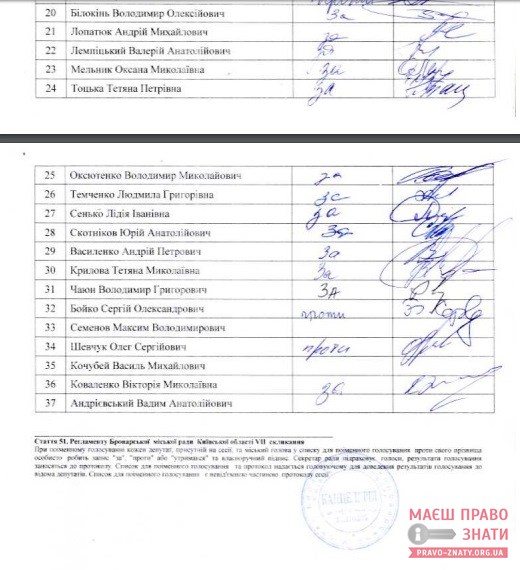 20 Білокінь Володимир Олексійович за
21 Лопатюк Андрій Михайлович за
22 Лемпіцький Валерій Анатолійович
23 Мельник Оксана Миколаївна за
24 Тоцька Тетяна Петрівна за
25 Оксютенко Володимир Миколайович за
26 Темченко Людмила Григорівна за
27 Сенько Лідія Іванівна за
28 Скотніков Юрій Анатолійович за
29 Василенко Андрій Петрович за
30 Крилова Тетяна Миколаївна за
31 Чаюн Володимир Григорович за
32 Бойко Сергій Олександрович проти
33 Семенов Максим Володимирович
34 Шевчук Олег Сергійович проти
35 Кочубей Василь Михайлович
36 Коваленко Вікторія Миколаївна за
37 Андрієвський Вадим Анатолійович
Стаття 51. Регламенту Броварської міської ради Київської області VII скликання
При поіменному голосуванні кожен депутат, присутній на сесії, та міський голова у списку для поіменного голосування проти свого прізвища
особисто робить запис "за", "проти" або "утримався" та власноручний підпис. Секретар ради підраховує голоси, результати голосування
заносяться до протоколу. Список для поіменного голосування та протокол надається головуючому для доведення результатів голосування до
відома депутатів. Список для поіменного голосування є невід'ємною частиною протоколу сесії.
МАЄШ ПРАВО
ЗНАТИ
PRAVO-ZNATY.ORG.UA